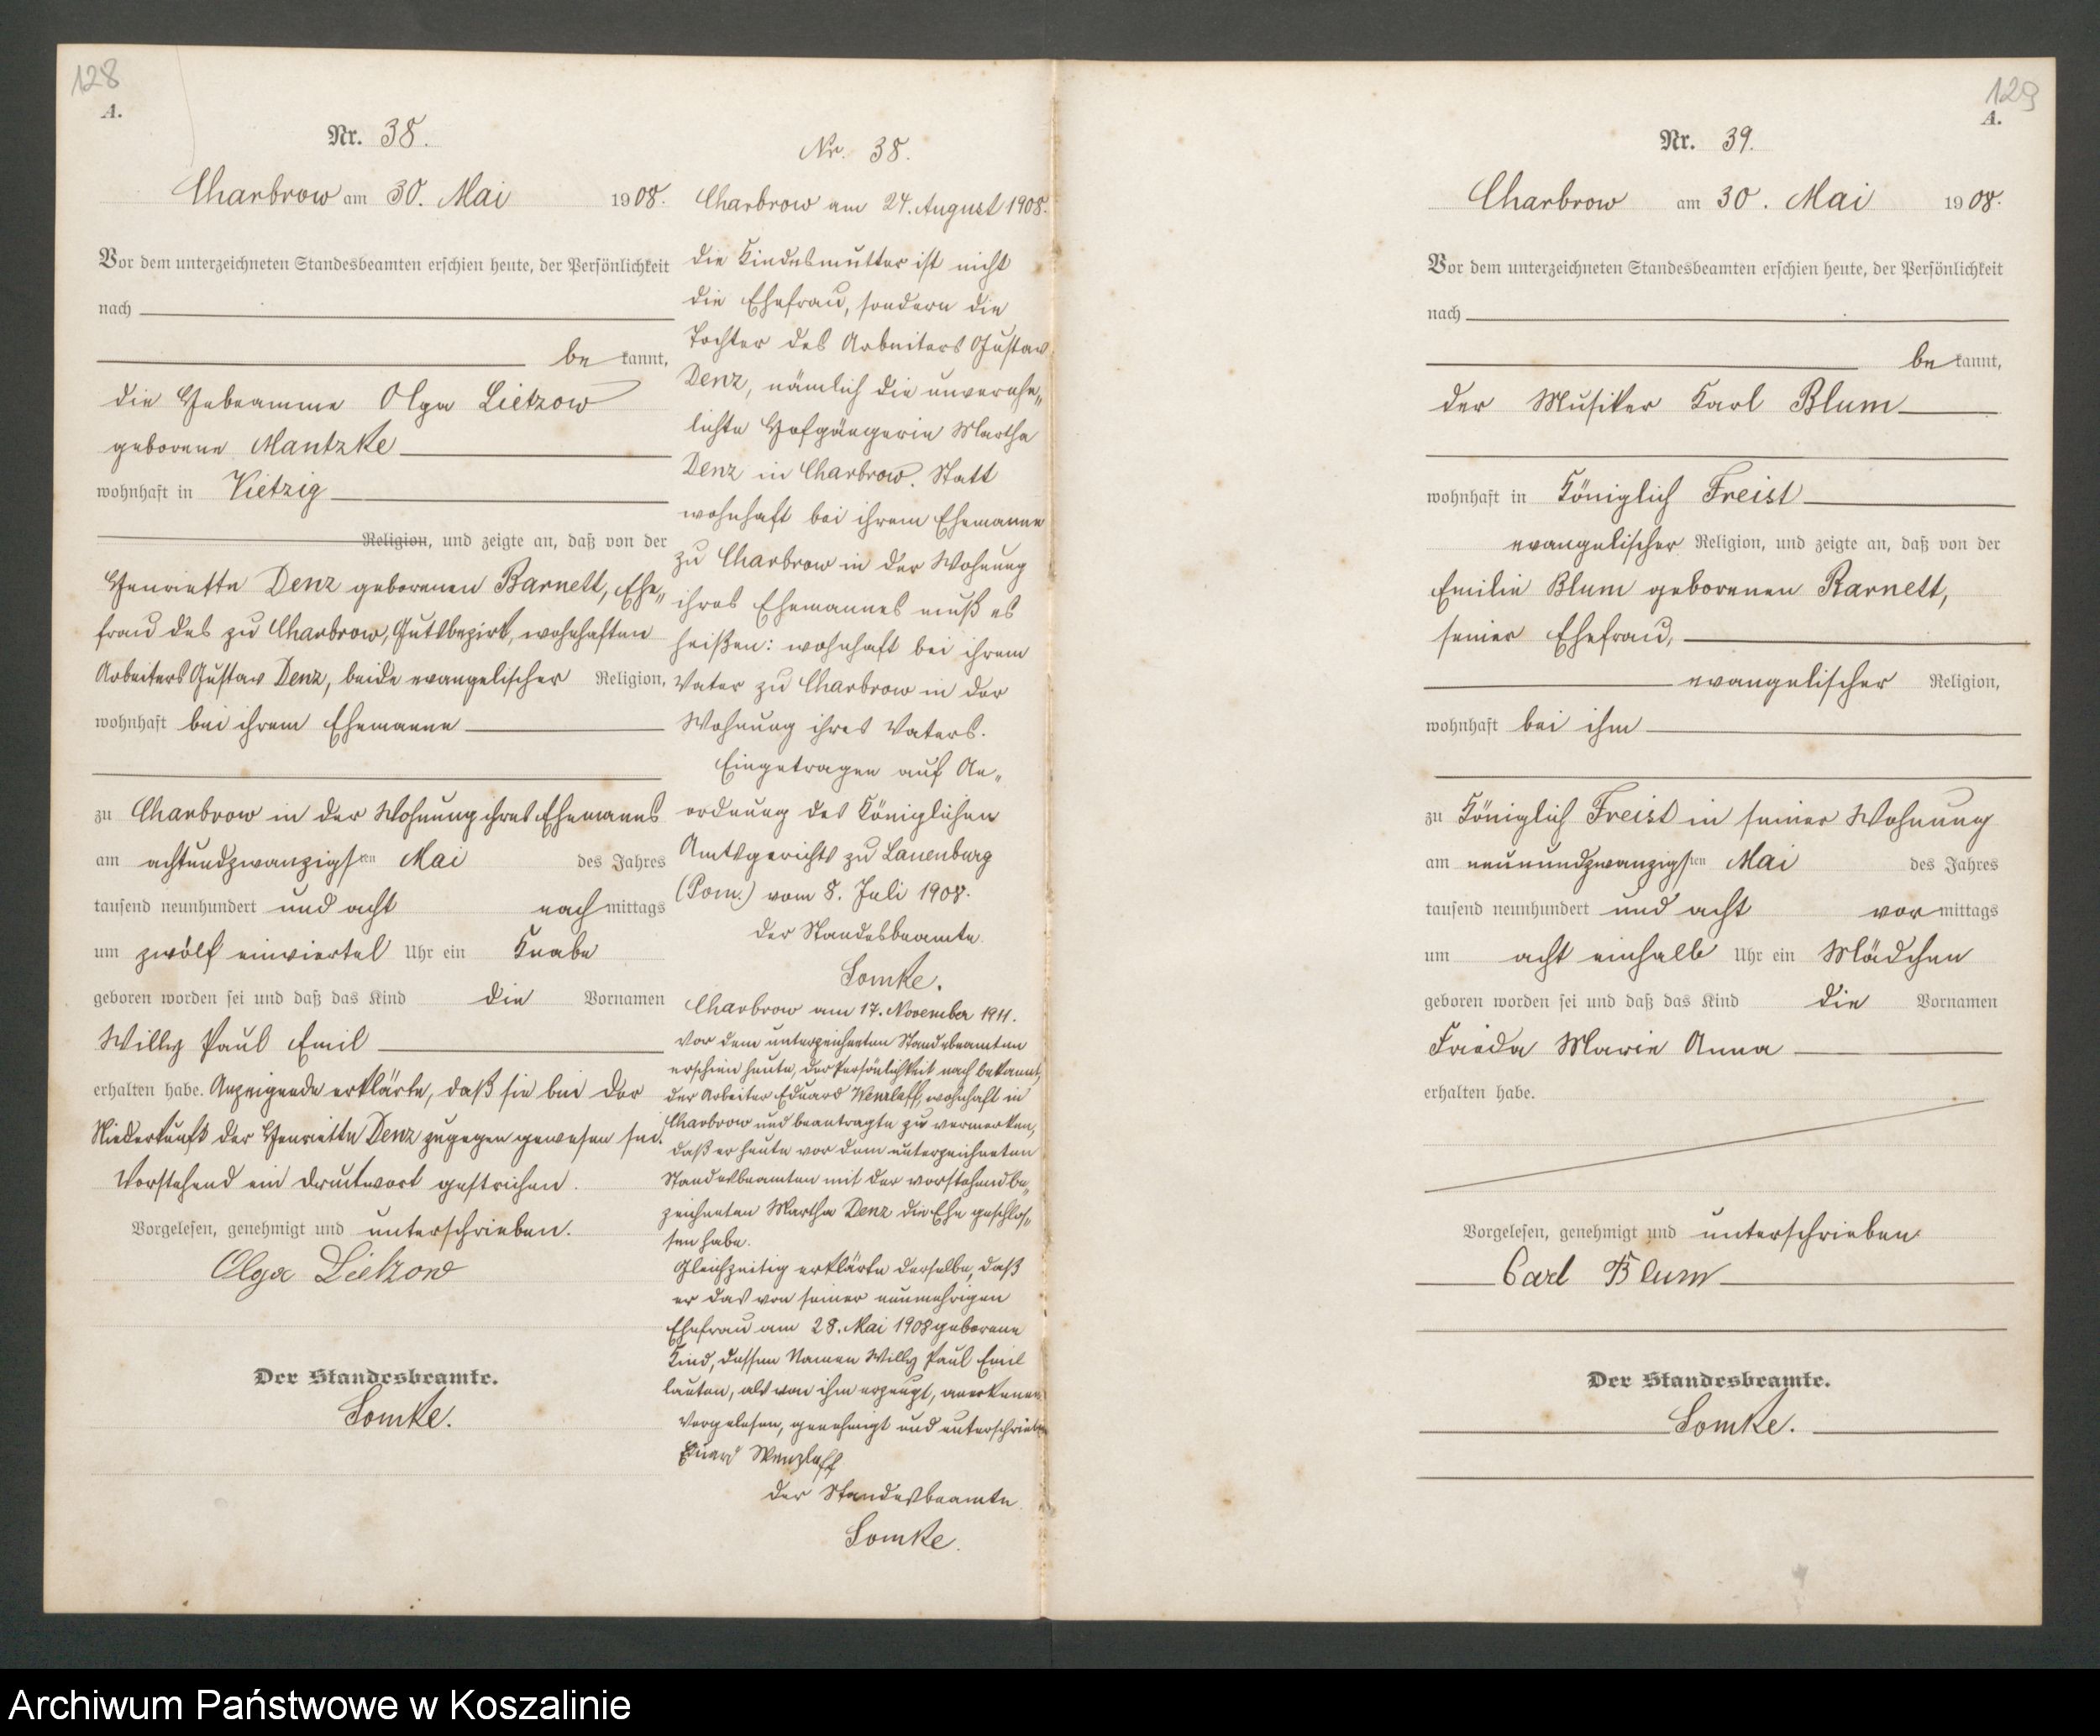 128
A.
Nr. 38.
Charbrow am 30. Mai 1908.
Vor dem unterzeichneten Standesbeamten erschien heute, der Persönlichkeit
nach
bekannt,
die Hebeamme Olga Lietzow
geborene Mantzke
wohnhaft in Vietzig
Religion, und zeigte an, daß von der
Henriette Denz geborenen Barnett, Ehe„
frau des zu Charbrow, Gutsbezirk, wohnhaften
Arbeiters Gustav Denz, beide evangelischer Religion,
wohnhaft bei ihrem Ehemanne
zu Charbrow in der Wohnung ihres Ehemanns
am achtundzwanzigsten Mai des Jahres
tausend neunhundert und acht nachmittags
um zwölf einviertel Uhr ein Knabe
geboren worden sei und daß das Kind die Vornamen
Willy Paul Emil
erhalten habe. Anzeigende erklärte, daß sie bei der
Niederkunft der Henriette Denz zugegen gewesen sei.
Vorstehend ein Druckwort gestrichen.
Vorgelesen, genehmigt und unterschrieben.
Olga Lietzow
Der Standesbeamte.
Lomke.
Nr. 38.
Charbrow am 24. August 1908.
Die Kindesmutter ist nicht
die Ehefrau, sondern die
Tochter des Arbeiters Gustav
Denz, nämlich die unverehe„
lichte Hofgängerin Martha
Denz in Charbrow. Statt
wohnhaft bei ihrem Ehemanne
zu Charbrow in der Wohnung
ihres Ehemannes muß es
heißen: wohnhaft bei ihrem
Vater zu Charbrow in der
Wohnung ihres Vaters.
Eingetragen auf An„
ordnung des Königlichen
Amtsgerichts zu Lauenburg
(Pom.) vom 8. Juli 1908.
Der Standesbeamte.
Lomke.
Charbrow am 17. November 1911.
Vor dem unterzeichneten Standesbeamten
erschien heute, der Persönlichkeit nach bekannt,
der Arbeiter Eduard Wenzlaff, wohnhaft in
Charbrow und beantragte zu vermerken,
daß er heute vor dem unterzeichneten
Standesbeamten mit der vorstehend be„
zeichneten Martha Denz die Ehe geschlos„
sen habe.
Gleichzeitig erklärte derselbe, daß
er das von seiner nunmehrigen
Ehefrau am 28. Mai 1908 geborene
Kind, dessen Namen Willy Paul Emil
lauten, als von ihm erzeugt, anerkenne.
Vorgelesen, genehmigt und unterschrieben
Eduard Wenzlaff
Der Standesbeamte.
Lomke.
129
A.
Nr. 39.
Charbrow am 30. Mai 1908.
Vor dem unterzeichneten Standesbeamten erschien heute, der Persönlichkeit
nach
bekannt,
der Musiker Karl Blum
wohnhaft in Königlich Freist
evangelischer Religion, und zeigte an, daß von der
Emilie Blum geborenen Barnett,
seiner Ehefrau,
evangelischer Religion,
wohnhaft bei ihm
zu Königlich Freist in seiner Wohnung
am neunundzwanzigsten Mai des Jahres
tausend neunhundert und acht vormittags
um acht einhalb Uhr ein Mädchen
geboren worden sei und daß das Kind die Vornamen
Frieda Marie Anna
erhalten habe.
Vorgelesen, genehmigt und unterschrieben.
Carl Blum
Der Standesbeamte.
Lomke.
Archiwum Państwowe w Koszalinie